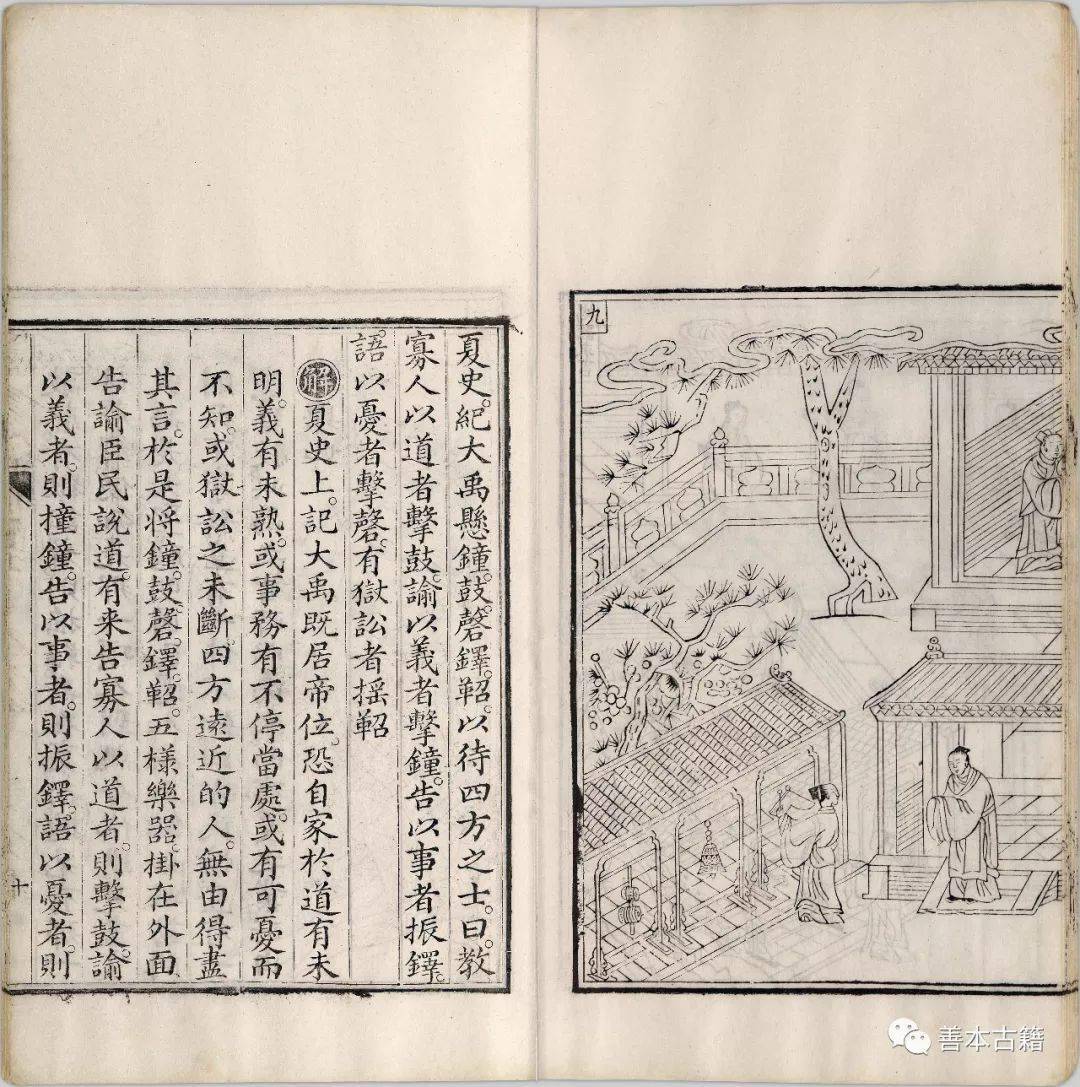 九
夏史紀大禹懸鐘。鼓。磬。鐸。鞀。以待四方之士。曰。教
寡人以道者擊鼓。諭以義者擊鐘。告以事者振鐸。
語以憂者擊磬。有獄訟者搖鞀
解夏史上。記大禹既居帝位。恐自家於道有未
明。義有未熟。或事務有不停當處。或有可憂而
不知。或獄訟之未斷。四方遠近的人。無由得盡
其言。於是將鐘。鼓。磬。鐸。鞀。五樣樂器。掛在外面
告諭臣民說道。有来告寡人以道者。則擊鼓。諭
以義者。則撞鐘。告以事者。則振鐸。語以憂者。則
十
善本古籍